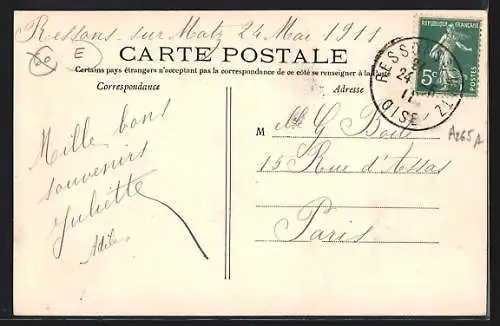 Ressons-sur Matz 24 Mai 1911
E
CARTE POSTALE
Certains pays étrangers n'acceptant pas la correspondance de ce côté se renseigner à la Poste
Correspondance
Adresse
RÉPUBLIQUE FRANÇAISE
5c
POSTES
RESSONS
24
OISE
A265A
Mille bons
souvenirs
Juliette
Melle G
15 Rue d'Assas
Paris